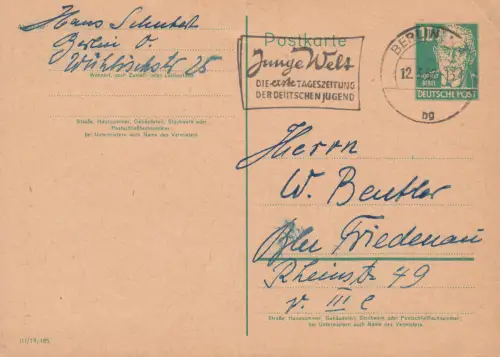 Hans Schubert
Berlin O.
Wühlischstr 25
Wohnort, auch Zustell- oder Leitpostamt
Straße, Hausnummer, Gebäudeteil, Stockwerk oder
Postschließfachnummer;
bei Untermietern auch Name des Vermieters
Postkarte
Junge Welt
DIE erste TAGESZEITUNG
DER DEUTSCHEN JUGEND
BERLIN
12.
bg
DEUTSCHE POST
Herrn
W. Beutler
Bln Friedenau
Rheinstr 49
v. III e
Straße, Hausnummer, Gebäudeteil, Stockwerk oder Postschließfachnummer;
bei Untermietern auch Name des Vermieters
III/18/185